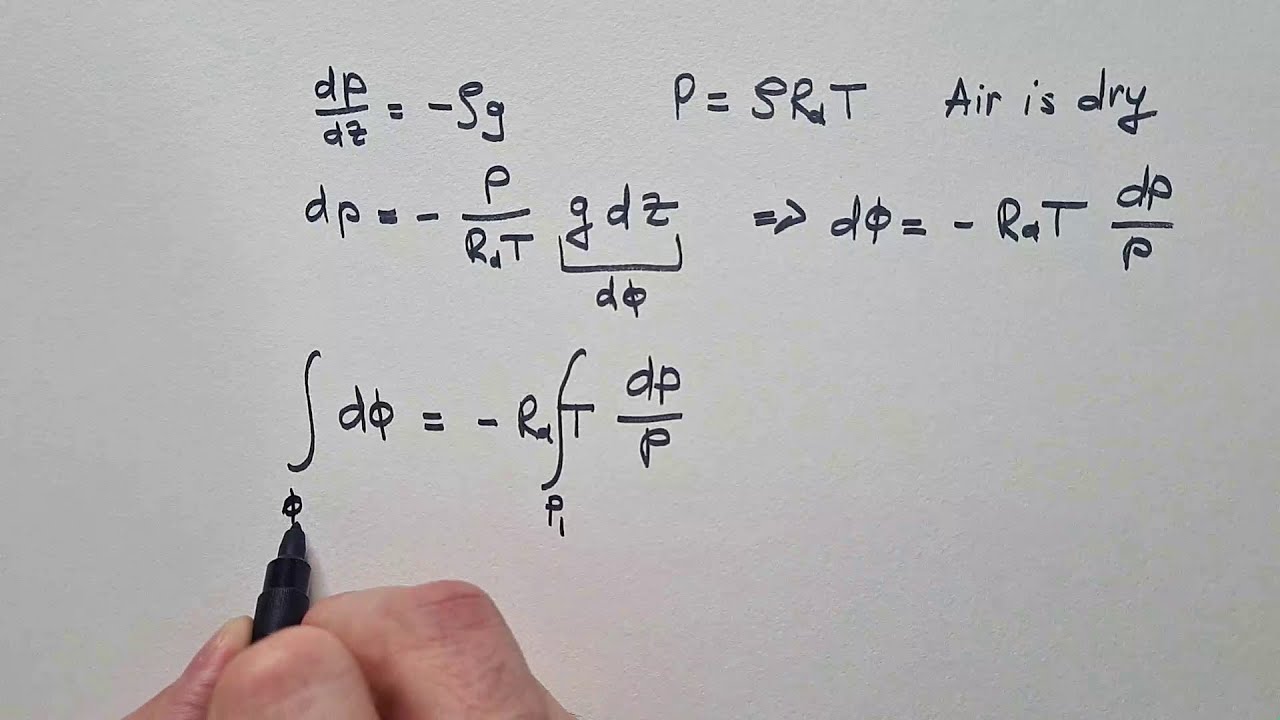 dp/dz = -ρg P = ρR_dT Air is dry
dp = - P/R_dT g dz ⇒ dϕ = - R_dT dp/p
dϕ
∫ dϕ = - R_d ∫ T dp/p
ϕ P₁